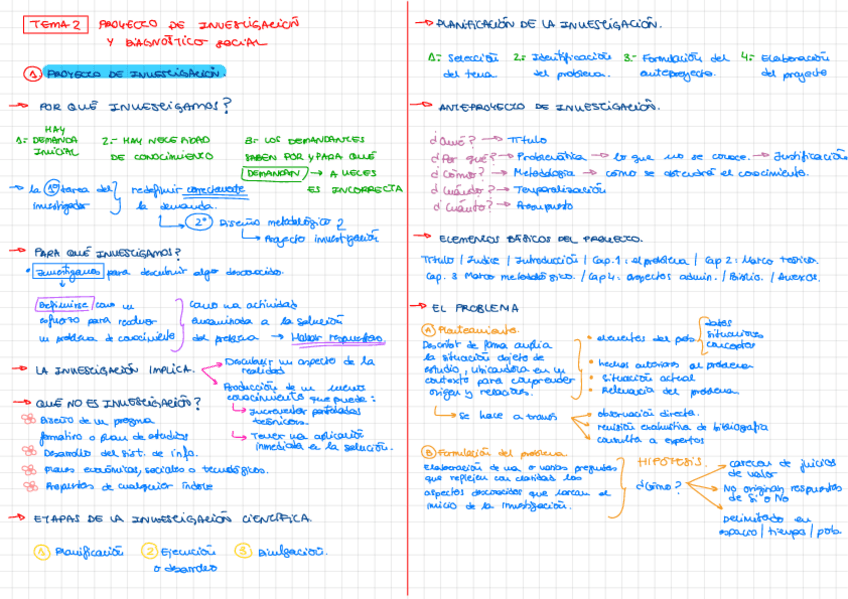 TEMA 2 PROYECTO DE INVESTIGACIÓN
Y DIAGNÓSTICO SOCIAL
1 PROYECTO DE INVESTIGACIÓN.
→ POR QUÉ INVESTIGAMOS?
1= HAY DEMANDA INICIAL
2.- HAY NECESIDAD DE CONOCIMIENTO
3= LOS DEMANDANTES SABEN POR Y PARA QUÉ DEMANDAN → A VECES ES INCORRECTA
→ la 1ª tarea del investigador
redefinir correctamente la demanda.
2º Diseño metodológico
→ Proyecto investigación
→ PARA QUÉ INVESTIGAMOS?
• Investigamos para descubrir algo desconocido.
Definirse como un esfuerzo para resolver un problema de conocimiento
Como una actividad encaminada a la solución del problema → Hallar respuestas
→ LA INVESTIGACIÓN IMPLICA
Descubrir un aspecto de la realidad
Producción de un nuevo conocimiento que puede:
→ Incrementar postulados teóricos.
→ Tener una aplicación inmediata en la solución.
→ QUÉ NO ES INVESTIGACIÓN?
Diseño de un programa formativo o plan de estudios
Desarrollo del sist. de info.
Planes económicos, sociales o tecnológicos.
Propuestas de cualquier índole
→ ETAPAS DE LA INVESTIGACIÓN CIENTÍFICA.
1 Planificación 2 Ejecución o desarrollo 3 Divulgación.
→ PLANIFICACIÓN DE LA INVESTIGACIÓN.
1= Selección del tema
2= Identificación del problema.
3.- Formulación del anteproyecto.
4= Elaboración del proyecto
→ ANTEPROYECTO DE INVESTIGACIÓN.
¿Qué? → Título
¿Por qué? → Problemática → lo que no se conoce. → Justificación
¿Cómo? → Metodología → cómo se obtendrá el conocimiento.
¿Cuándo? → Temporalización
¿Cuánto? → Presupuesto
→ ELEMENTOS BÁSICOS DEL PROYECTO.
Título / Índice / Introducción / Cap. 1: el problema / Cap 2: Marco teórico.
Cap. 3 Marco metodológico. / Cap 4: aspectos admin. / Biblio. / Anexos.
→ EL PROBLEMA
A Planteamiento.
Describir de forma amplia la situación objeto de estudio, ubicándola en un contexto para comprender origen y relaciones.
• elementos del pbla
datos
situaciones
conceptos
• hechos anteriores al problema
• Situación actual
• Relevancia del problema.
→ Se hace a través
observación directa.
revisión exhaustiva de bibliografía
consulta a expertos
B Formulación del problema.
Elaboración de una o varias preguntas que reflejen con claridad los aspectos desconocidos que marcan el inicio de la investigación.
HIPÓTESIS.
¿Cómo?
carecen de juicios de valor
No originan respuestas de Sí o No
Delimitado en espacio / tiempo / pobl.